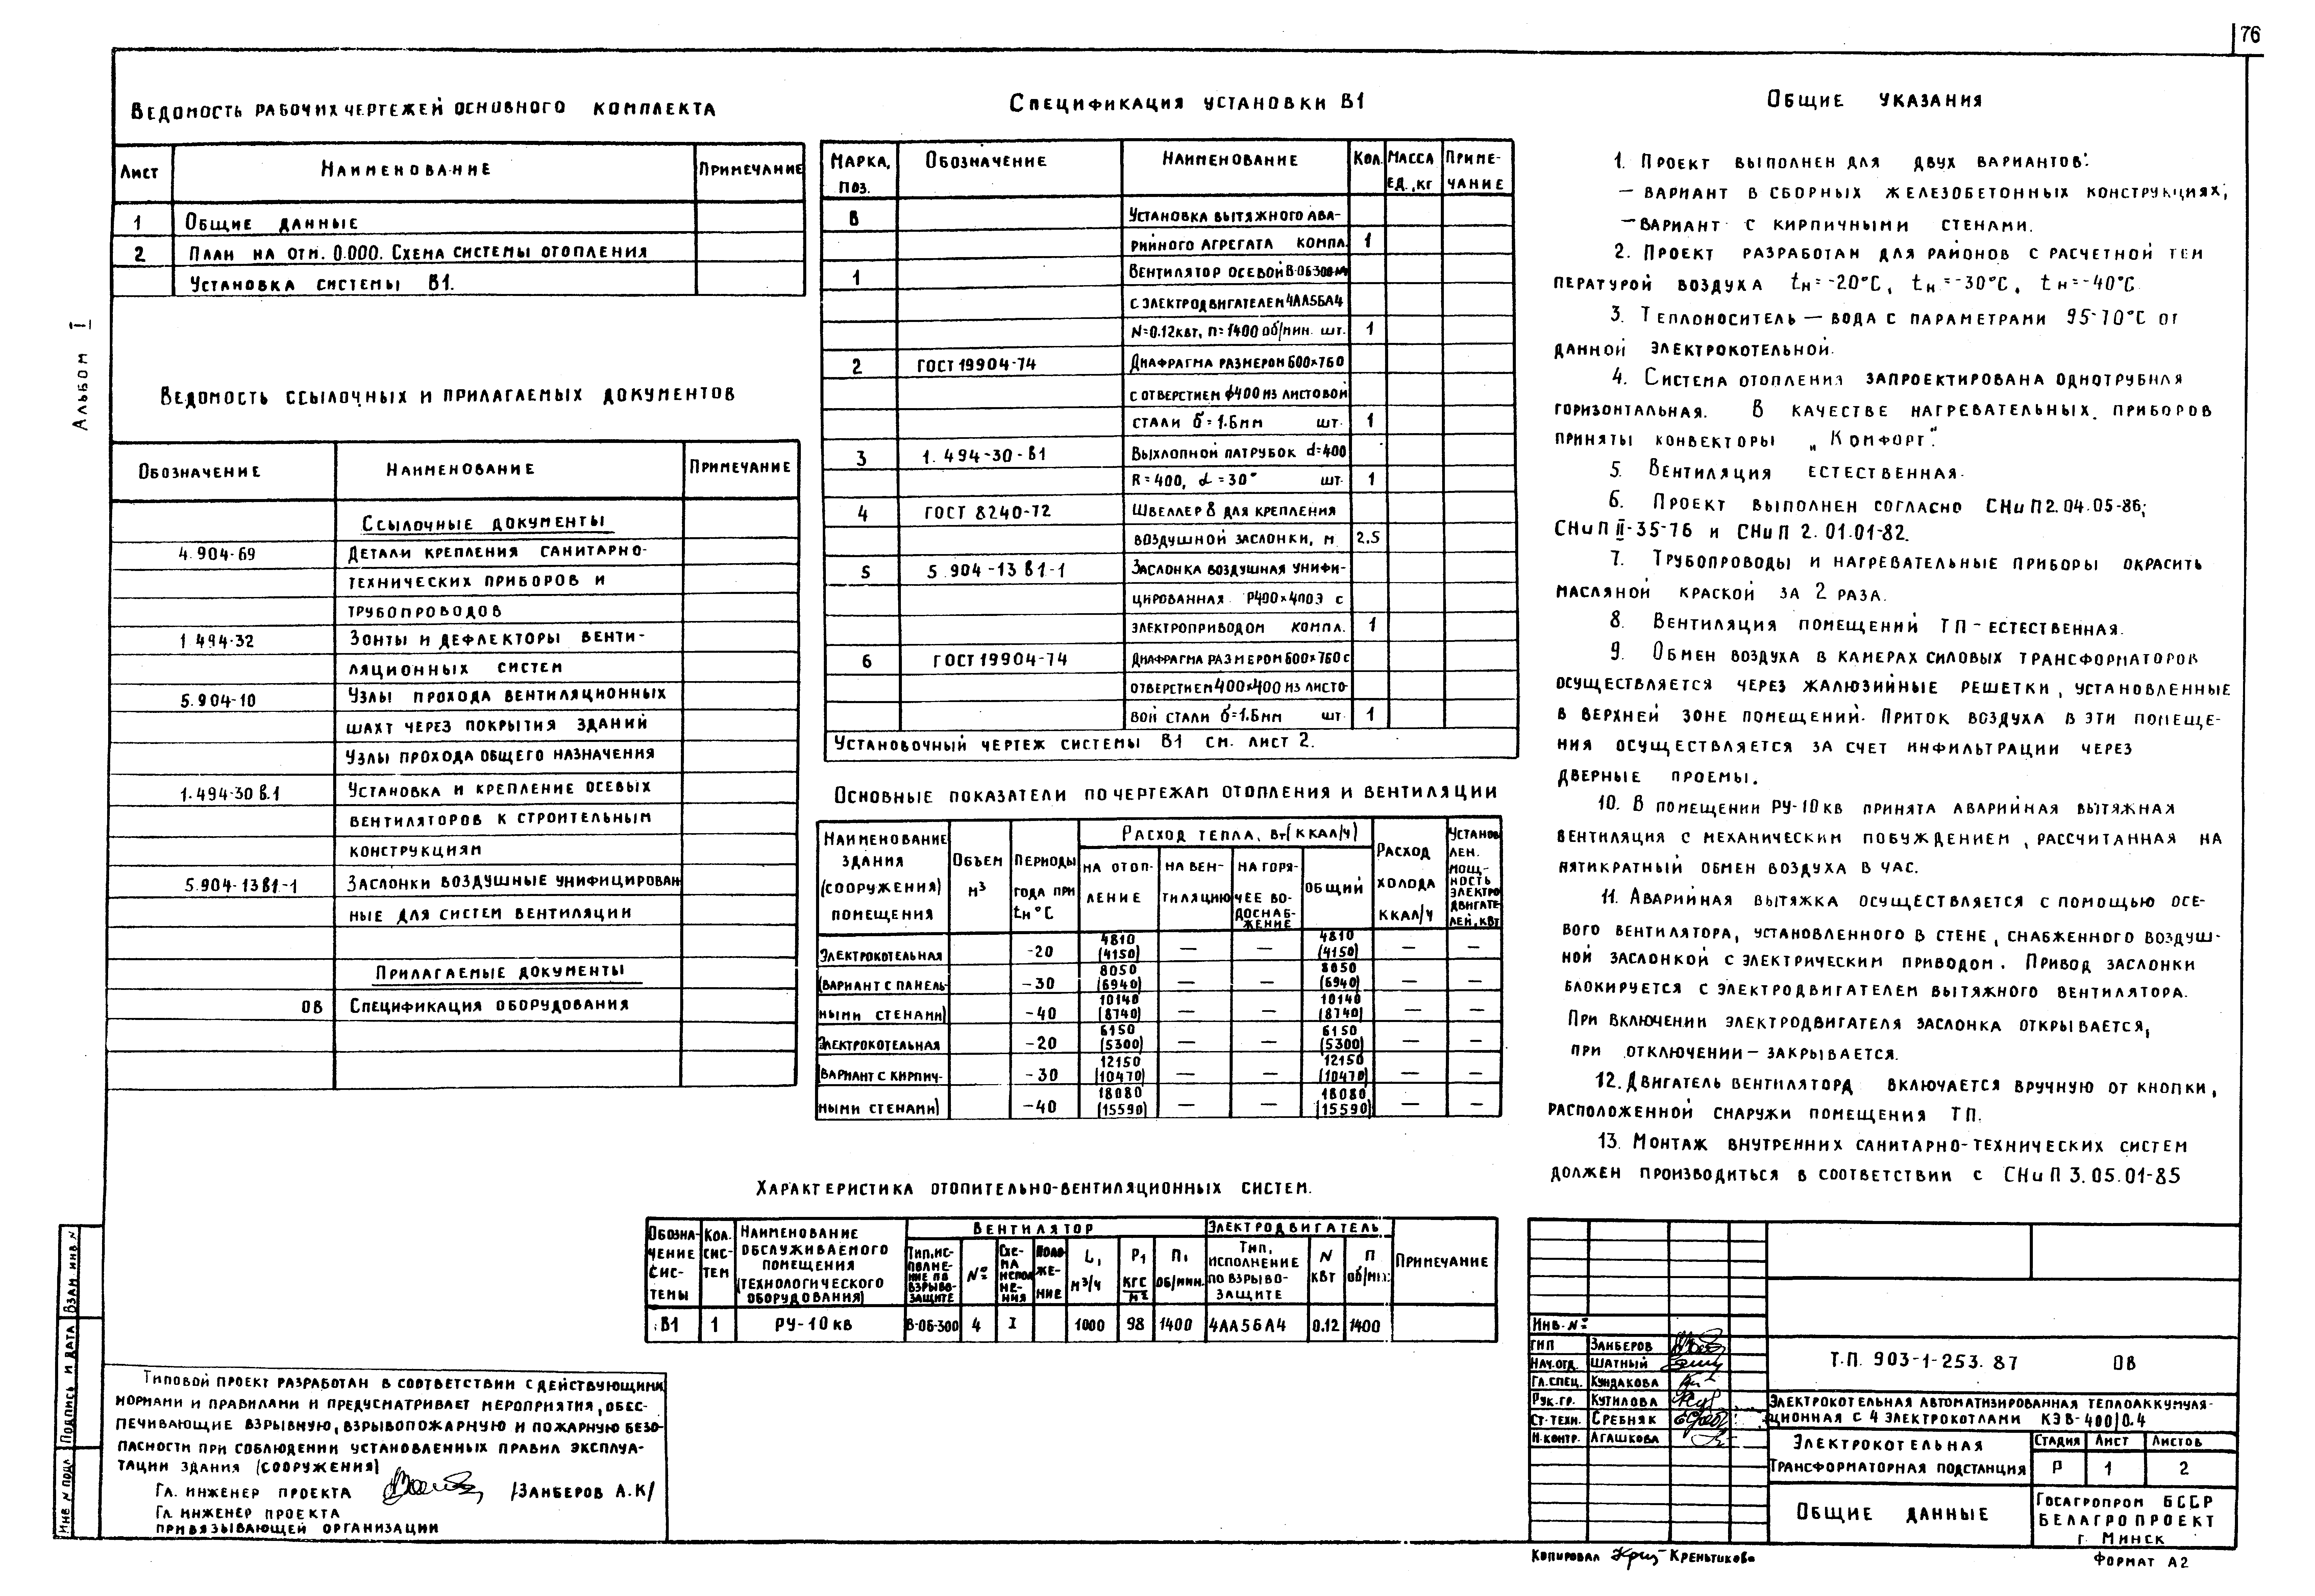 76
Альбом I
Ведомость рабочих чертежей основного комплекта
Лист Наименование Примечание
1 Общие данные
2 План на отм. 0.000. Схема системы отопления
Установка системы В1.
Ведомость ссылочных и прилагаемых документов
Обозначение Наименование Примечание
Ссылочные документы
4.904-69 Детали крепления санитарно-
технических приборов и
трубопроводов
1.494-32 Зонты и дефлекторы венти-
ляционных систем
5.904-10 Узлы прохода вентиляционных
шахт через покрытия зданий
Узлы прохода общего назначения
1.494-30 В.1 Установка и крепление осевых
вентиляторов к строительным
конструкциям
5.904-13 В1-1 Заслонки воздушные унифицирован
ные для систем вентиляции
Прилагаемые документы
ОВ Спецификация оборудования
Спецификация установки В1
Марка, поз. Обозначение Наименование Кол. Масса ед., кг Приме-чание
В Установка вытяжного ава-
рийного агрегата компл. 1
1 Вентилятор осевой В-06-300-№4
с электродвигателем 4АА56А4
N=0.12квт, n=1400 об/мин. шт. 1
2 ГОСТ 19904-74 Диафрагма размером 600×760
с отверстием ф400 из листовой
стали б=1.6мм шт. 1
3 1.494-30-В1 Выхлопной патрубок d=400
R=400, α=30° шт. 1
4 ГОСТ 8240-72 Швеллер 8 для крепления
воздушной заслонки, м 2.5
5 5.904-13 В1-1 Заслонка воздушная унифи-
цированная Р400×400Э с
электроприводом компл. 1
6 ГОСТ 19904-74 Диафрагма размером 600×760 с
отверстием 400×400 из листо-
вой стали б=1.6мм шт 1
Установочный чертеж системы В1 см. лист 2.
Основные показатели по чертежам отопления и вентиляции
Наименование здания (сооружения) помещения
Объем м³
Периоды года при tн °С
Расход тепла, Вт (ккал/ч)
на отоп-ление на вен-тиляцию на горя-чее во-доснаб-жение общий
Расход холода ккал/ч
Установ лен. мощ-ность электро двигате-лей, кВт
Электрокотельная -20 4810 (4150) — — 4810 (4150) — —
(вариант с панель- -30 8050 (6940) — — 8050 (6940) — —
ными стенами) -40 10140 (8740) — — 10140 (8740) — —
Электрокотельная -20 6150 (5300) — — 6150 (5300) — —
(вариант с кирпич- -30 12150 (10470) — — 12150 (10470) — —
ными стенами) -40 18080 (15590) — — 18080 (15590) — —
Характеристика отопительно-вентиляционных систем.
Обозна-чение сис-темы Кол. сис-тем Наименование обслуживаемого помещения (технологического оборудования)
Вентилятор
Тип, ис-полне-ние по взрыво-защите № Схе-ма испол не-ния Поло же-ние L, м³/ч P, кгс/м² П, об/мин.
Электродвигатель
Тип, исполнение по взрыво-защите N кВт П об/мин
Примечание
В1 1 РУ-10 кв В-06-300 4 I 1000 98 1400 4АА56А4 0.12 1400
Общие указания
1. Проект выполнен для двух вариантов:
— вариант в сборных железобетонных конструкциях;
— вариант с кирпичными стенами.
2. Проект разработан для районов с расчетной тем
пературой воздуха tн=-20°С, tн=-30°С, tн=-40°С
3. Теплоноситель — вода с параметрами 95-70°С от
данной электрокотельной.
4. Система отопления запроектирована однотрубная
горизонтальная. В качестве нагревательных приборов
приняты конвекторы „Комфорт".
5. Вентиляция естественная.
6. Проект выполнен согласно СНиП 2.04.05-86;
СНиП II-35-76 и СНиП 2.01.01-82.
7. Трубопроводы и нагревательные приборы окрасить
масляной краской за 2 раза.
8. Вентиляция помещений ТП - естественная.
9. Обмен воздуха в камерах силовых трансформаторов
осуществляется через жалюзийные решетки, установленные
в верхней зоне помещений. Приток воздуха в эти помеще-
ния осуществляется за счет инфильтрации через
дверные проемы.
10. В помещении РУ-10кв принята аварийная вытяжная
вентиляция с механическим побуждением, рассчитанная на
пятикратный обмен воздуха в час.
11. Аварийная вытяжка осуществляется с помощью осе-
вого вентилятора, установленного в стене, снабженного воздуш-
ной заслонкой с электрическим приводом. Привод заслонки
блокируется с электродвигателем вытяжного вентилятора.
При включении электродвигателя заслонка открывается,
при отключении — закрывается.
12. Двигатель вентилятора включается вручную от кнопки,
расположенной снаружи помещения ТП.
13. Монтаж внутренних санитарно-технических систем
должен производиться в соответствии с СНиП 3.05.01-85
Типовой проект разработан в соответствии с действующими
нормами и правилами и предусматривает мероприятия, обес-
печивающие взрывную, взрывопожарную и пожарную безо-
пасности при соблюдении установленных правил эксплуа-
тации здания (сооружения)
Гл. инженер проекта /Занберов А.К/
Гл. инженер проекта
привязывающей организации
Взам. инв. №
Подпись и дата
Инв № подл
Инв. №
ГИП Занберов
Нач.отд. Шатный
Гл.спец. Кундакова
Рук.гр. Кутилова
Ст.техн. Сребняк
Н.контр. Агашкова
Т.П. 903-1-253.87 ОВ
Электрокотельная автоматизированная теплоаккумуля-
ционная с 4 электрокотлами КЭВ-400/0.4
Электрокотельная
Трансформаторная подстанция
Стадия Лист Листов
Р 1 2
Общие данные
Госагропром БССР
Белагропроект
г. Минск
Копировал Креньтикова
Формат А2